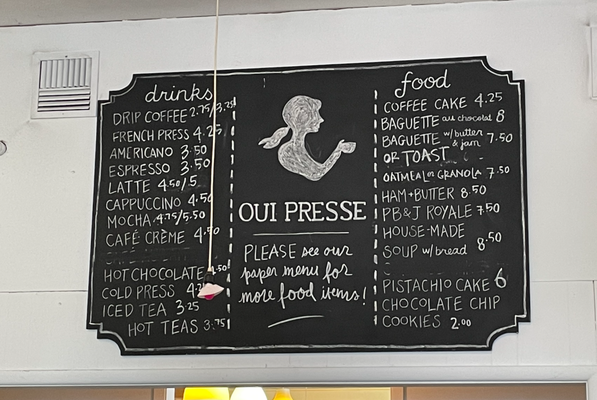 drinks
DRIP COFFEE 2.75/3.25
FRENCH PRESS 4.25
AMERICANO 3.50
ESPRESSO 3.50
LATTE 4.50/5
CAPPUCCINO 4.50
MOCHA 4.75/5.50
CAFÉ CRÈME 4.50
HOT CHOCOLATE
COLD PRESS
ICED TEA 3.25
HOT TEAS 3.75
OUI PRESSE
PLEASE see our
paper menu for
more food items!
food
COFFEE CAKE 4.25
BAGUETTE au chocolat 8
BAGUETTE w/butter & jam 7.50
OR TOAST
OATMEAL OR GRANOLA 7.50
HAM + BUTTER 8.50
PB&J ROYALE 7.50
HOUSE-MADE
SOUP w/bread 8.50
PISTACHIO CAKE 6
CHOCOLATE CHIP
COOKIES 2.00